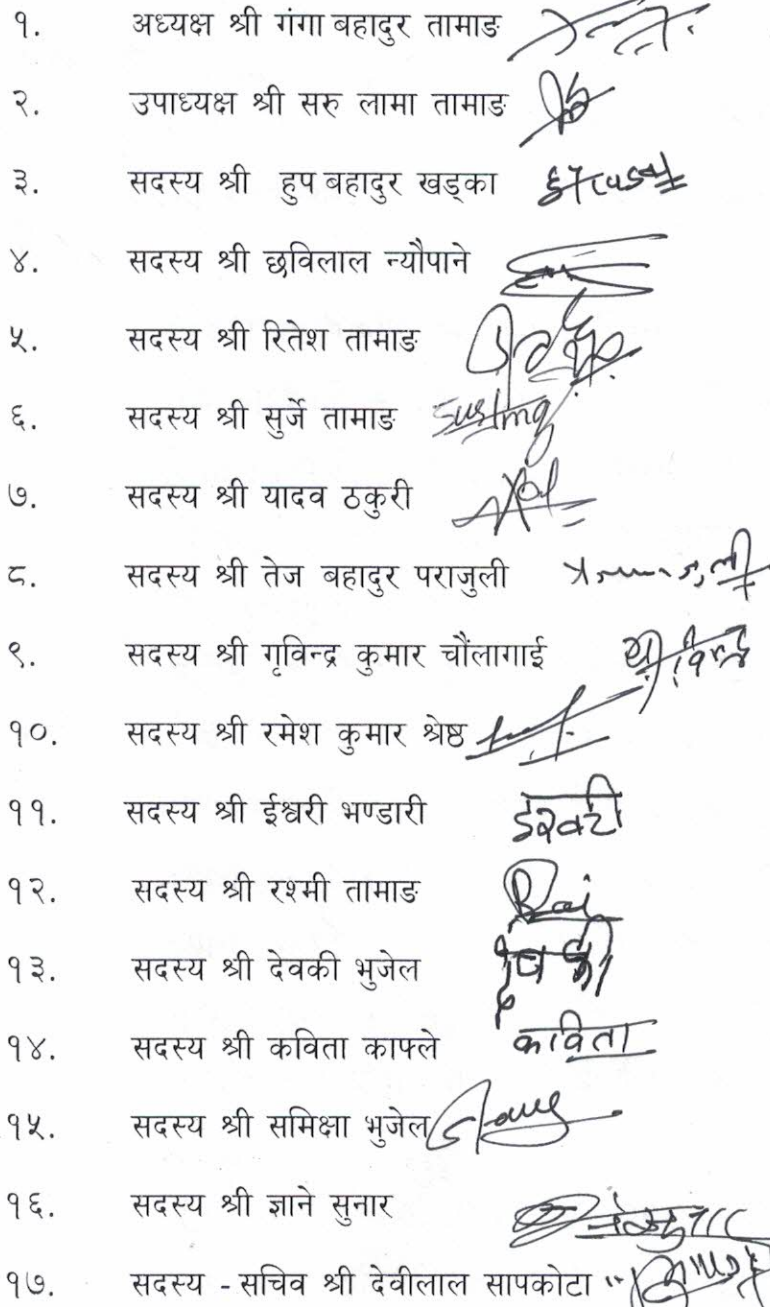 १. अध्यक्ष श्री गंगा बहादुर तामाङ
२. उपाध्यक्ष श्री सरु लामा तामाङ
३. सदस्य श्री हुप बहादुर खड्का
४. सदस्य श्री छविलाल न्यौपाने
५. सदस्य श्री रितेश तामाङ
६. सदस्य श्री सुर्जे तामाङ
७. सदस्य श्री यादव ठकुरी
८. सदस्य श्री तेज बहादुर पराजुली
९. सदस्य श्री गृविन्द्र कुमार चौंलागाई
१०. सदस्य श्री रमेश कुमार श्रेष्ठ
११. सदस्य श्री ईश्वरी भण्डारी
१२. सदस्य श्री रश्मी तामाङ
१३. सदस्य श्री देवकी भुजेल देवकी
१४. सदस्य श्री कविता काफ्ले कविता
१५. सदस्य श्री समिक्षा भुजेल
१६. सदस्य श्री ज्ञाने सुनार
१७. सदस्य - सचिव श्री देवीलाल सापकोटा